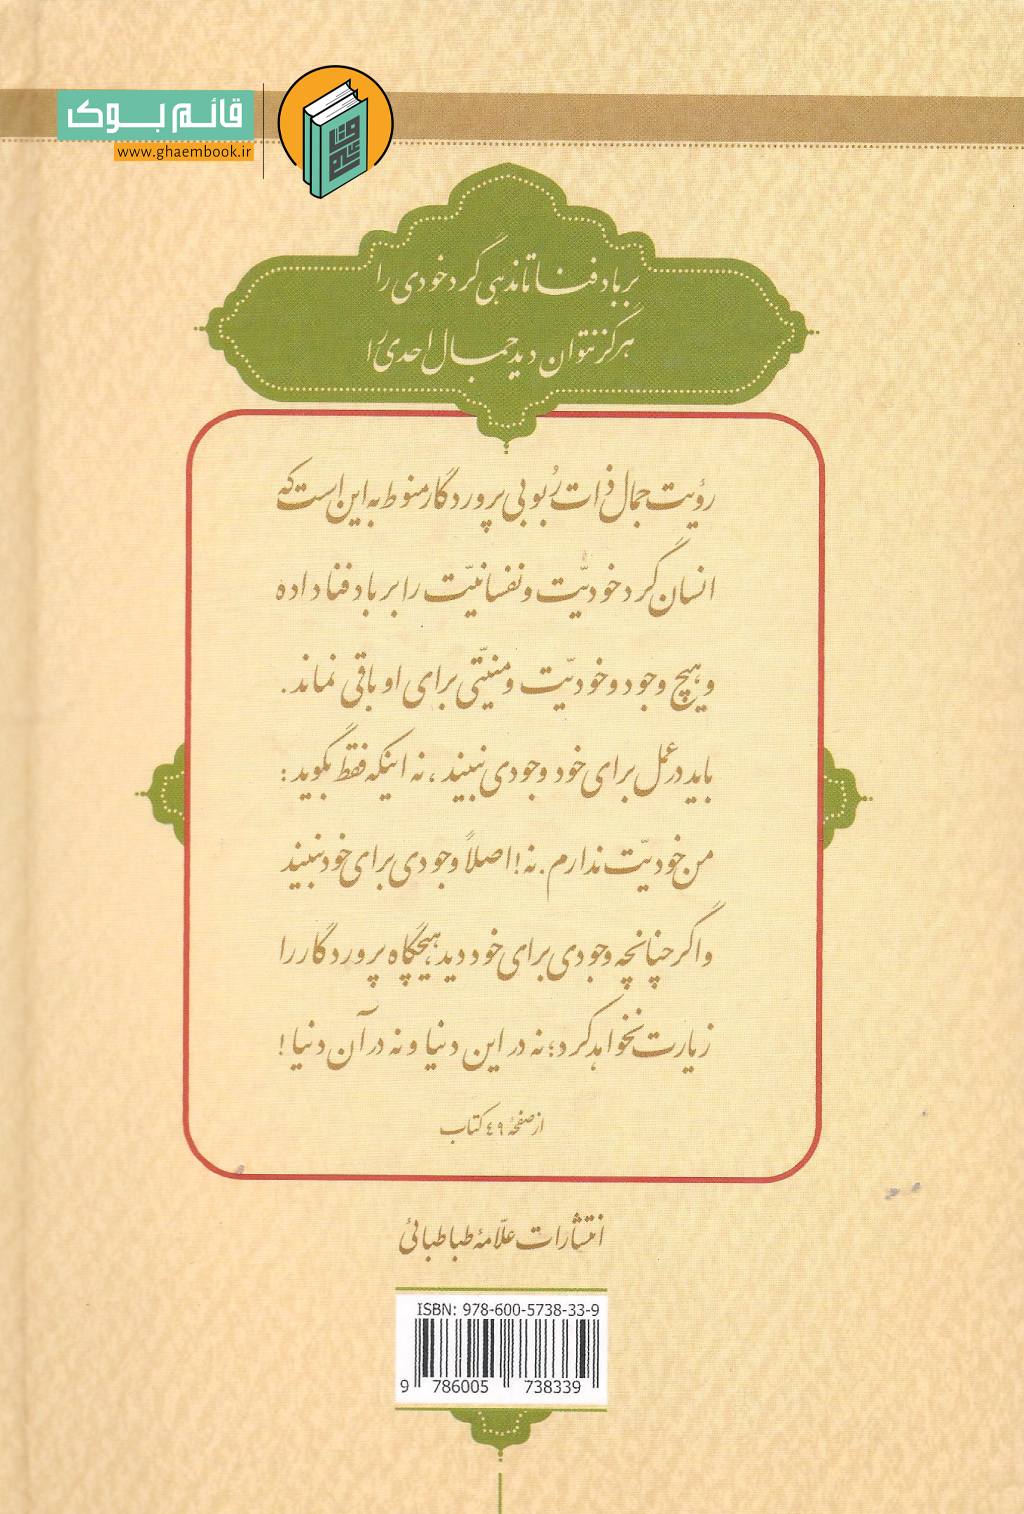 قائم بوک
www.ghaembook.ir
بر باد فنا تا ندهی گرد خودی را
هرگز نتوان دید جمال احدی را
رؤیت جمال ذات رُبوبی پروردگار منوط به این است که
انسان گرد خودیّت و نفسانیّت را بر باد فنا داده
و هیچ وجود و خودیّت و منیّتی برای او باقی نماند.
باید در عمل برای خود وجودی نبیند، نه اینکه فقط بگوید:
من خودیّت ندارم. نه! اصلاً وجودی برای خود نبیند
و اگر چنانچه وجودی برای خود دید، هیچگاه پروردگار را
زیارت نخواهد کرد؛ نه در این دنیا و نه در آن دنیا!
از صفحهٔ ٤٩ کتاب
انتشارات علّامهٔ طباطبائی
ISBN: 978-600-5738-33-9
9 786005 738339